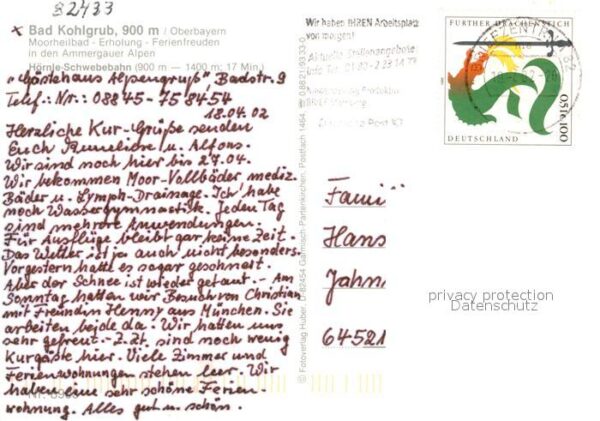 82433
x Bad Kohlgrub, 900 m / Oberbayern
Moorheilbad - Erholung - Ferienfreuden
in den Ammergauer Alpen
Hörnle-Schwebebahn (900 m — 1400 m; 17 Min.)
"Gästehaus Alpengruß", Badstr. 9
Telef.: Nr.: 08845-758454
18.04.02
Herzliche Kur-Grüße senden
Euch Anneliese u. Alfons.
Wir sind noch hier bis 27.04.
Wir bekommen Moor-Vollbäder mediz.
Bäder u. Lymph-Drainage. Ich habe
noch Wassergymnastik. Jeden Tag
sind mehrere Anwendungen.
Für Ausflüge bleibt gar keine Zeit.
Das Wetter ist ja auch nicht besonders.
Vorgestern hatte es sogar geschneit.
Aber der Schnee ist wieder getaut. - Am
Sonntag hatten wir Besuch von Christian
mit Freundin Henny aus München. Sie
arbeiten beide da. Wir hatten uns
sehr gefreut. - Z.Zt. sind noch wenig
Kurgäste hier. Viele Zimmer und
Ferienwohnungen stehen leer. Wir
haben eine sehr schöne Ferien-
wohnung. Alles gut u. schön.
© Fotoverlag Huber, D-82454 Garmisch-Partenkirchen, Postfach 1464
Wir haben IHREN Arbeitsplatz
von morgen!
Aktuelle Stellenangebote:
Deutsche Post
FURTHER DRACHENSTICH
BRIEFZENTRUM
0,51 € 100
DEUTSCHLAND
Fami
Hans
Jahn
64521
privacy protection
Datenschutz